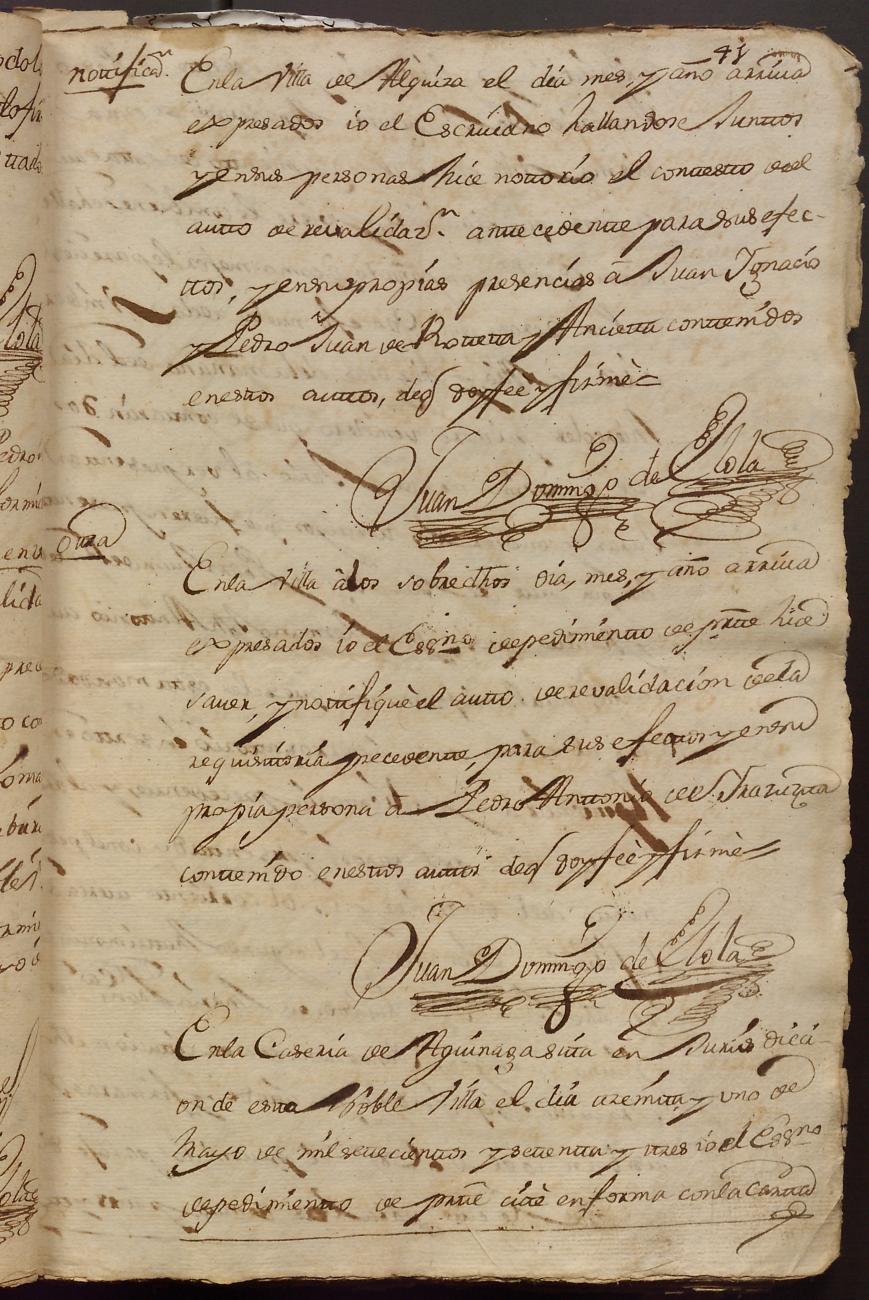 41
notificaon.
Enla Villa de Alquiza el dia mes, y año arriva
expresados io el Escrivano hallandose Junttos
y ensus personas hice nottorio el contestto del
autto de revalidazn. antecedentte para sus efec-
ttos, y ensus propias presencias â Juan Ygnacio
y Pedro Juan de Rotetta y Ancietta contenidos
enestos auttos, deq doy fee y firmè=
Juan Domingo de Elola
Ottra
Enla Villa âlos sobredhos dia, mes, y año arriva
expresados io el Essno depedimentto de partte hice
saver, y nottifiquè el autto de revalidacion dela
requisittoria precedentte, para sus efecttos y ensu
propia persona â Pedro Anttonio de
contenido enestos auttos deq doy feè y firmè=
Juan Domingo de Elola
Enla Caseria de Aguinaga sitta en Jurisdici-
on de esta Noble Villa el dia treintta y uno de
Mayo de mil settecienttos y settentta y ttres io el Essno
depedimientto de partte citè enforma conla cartta